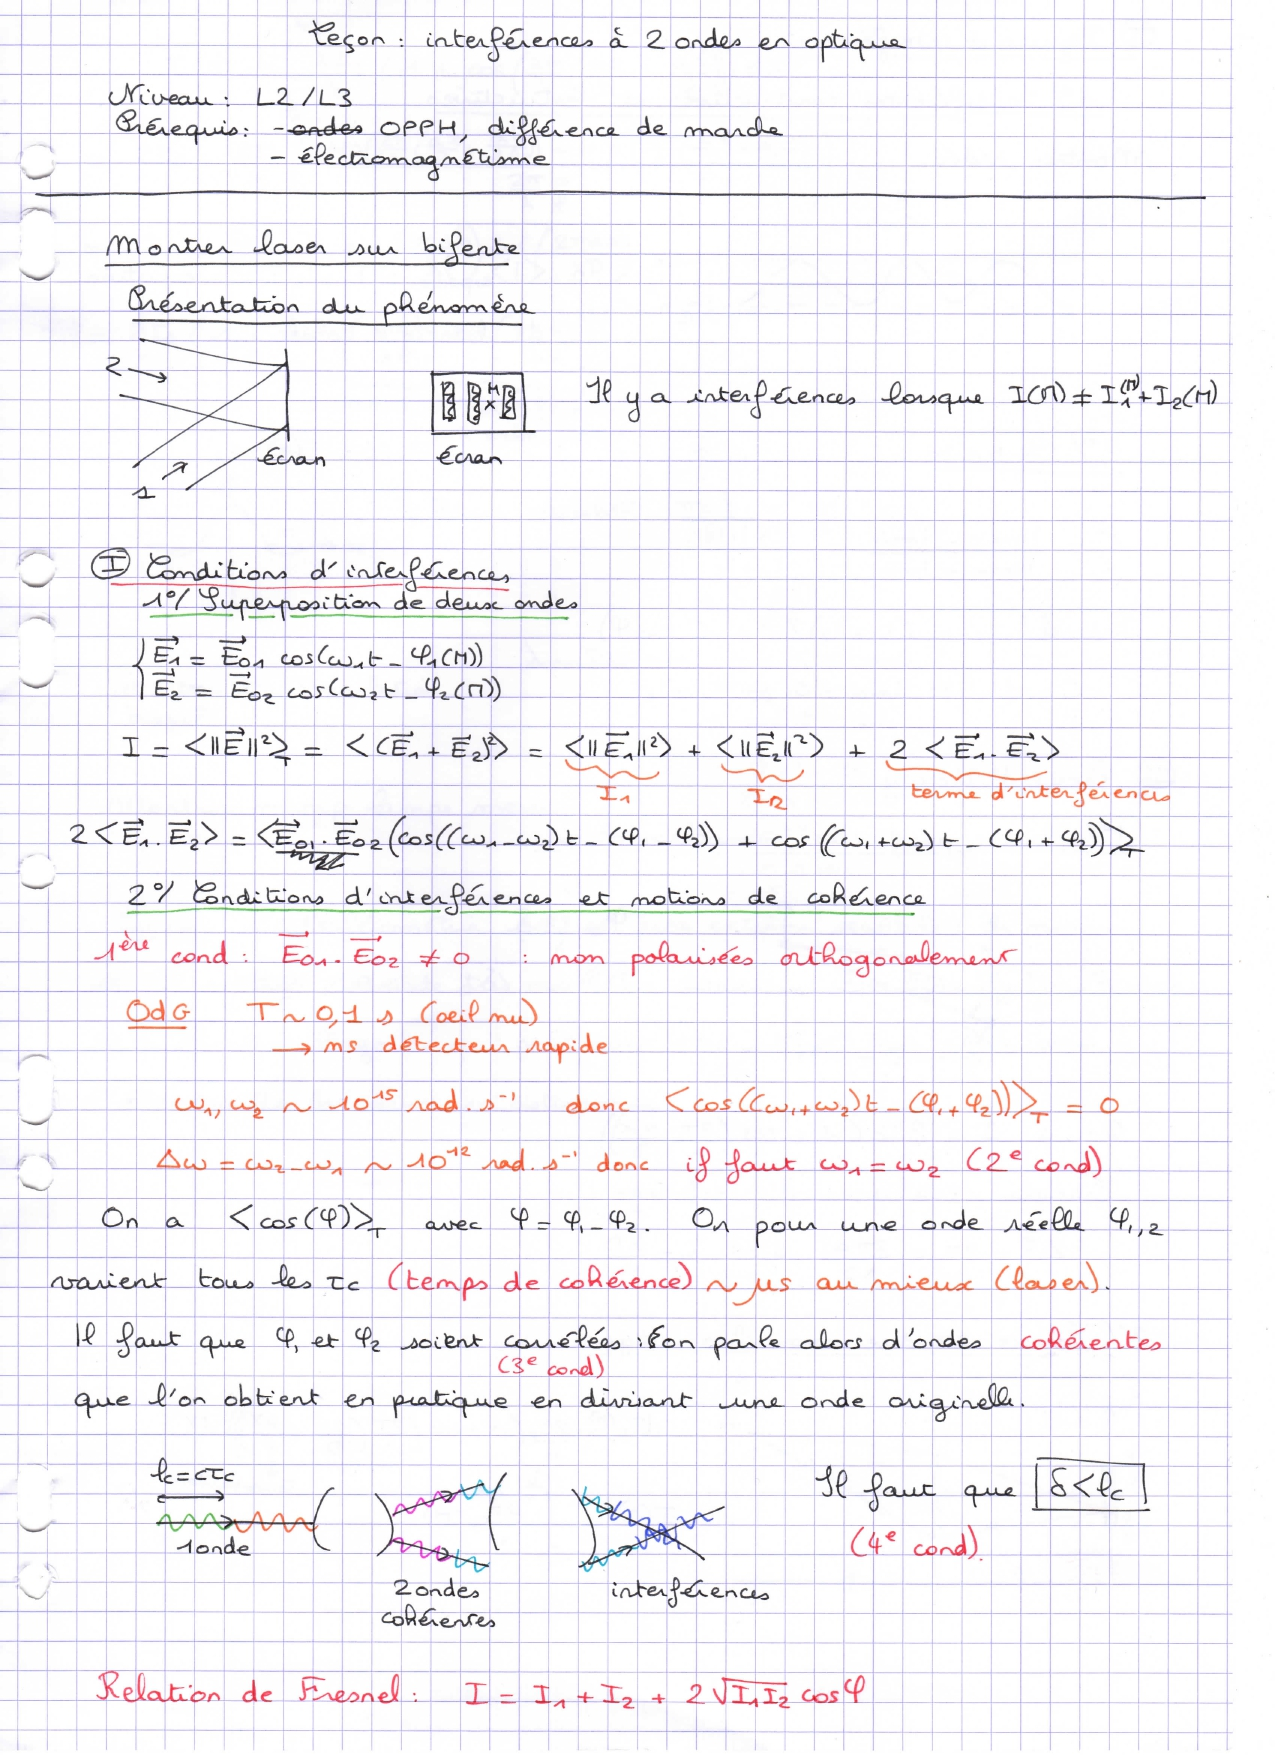 Leçon : interférences à 2 ondes en optique
Niveau : L2/L3
Prérequis : - ondes OPPH, différence de marche
- électromagnétisme
Montrer laser sur bifente
Présentation du phénomène
2
1
écran
M
×
écran
Il y a interférences lorsque I(M) ≠ I₁(M) + I₂(M)
I Conditions d'interférences
1°/ Superposition de deux ondes
E⃗₁ = E⃗₀₁ cos(ω₁t - φ₁(M))
E⃗₂ = E⃗₀₂ cos(ω₂t - φ₂(M))
I = <||E⃗||²>_T = <(E⃗₁ + E⃗₂)²> = <||E⃗₁||²> + <||E⃗₂||²> + 2 <E⃗₁.E⃗₂>
I₁ I₂ terme d'interférences
2<E⃗₁.E⃗₂> = <E⃗₀₁.E⃗₀₂(cos((ω₁-ω₂)t - (φ₁-φ₂)) + cos((ω₁+ω₂)t - (φ₁+φ₂))>_T
2°/ Conditions d'interférences et notions de cohérence
1ère cond : E⃗₀₁.E⃗₀₂ ≠ 0 : non polarisées orthogonalement
OdG T ~ 0,1 s (oeil nu)
→ ms détecteur rapide
ω₁, ω₂ ~ 10¹⁵ rad.s⁻¹ donc <cos((ω₁+ω₂)t - (φ₁+φ₂))>_T = 0
Δω = ω₂-ω₁ ~ 10¹² rad.s⁻¹ donc if faut ω₁ = ω₂ (2e cond)
On a <cos(φ)>_T avec φ = φ₁-φ₂. On pour une onde réelle φ₁,₂
varient tous les τc (temps de cohérence) ~ μs au mieux (laser).
Il faut que φ₁ et φ₂ soient corrélées : l'on parle alors d'ondes cohérentes
(3e cond)
que l'on obtient en pratique en divisant une onde originelle.
lc = cτc
1 onde
2 ondes
cohérentes
interférences
Il faut que δ < lc
(4e cond).
Relation de Fresnel : I = I₁ + I₂ + 2√I₁I₂ cosφ